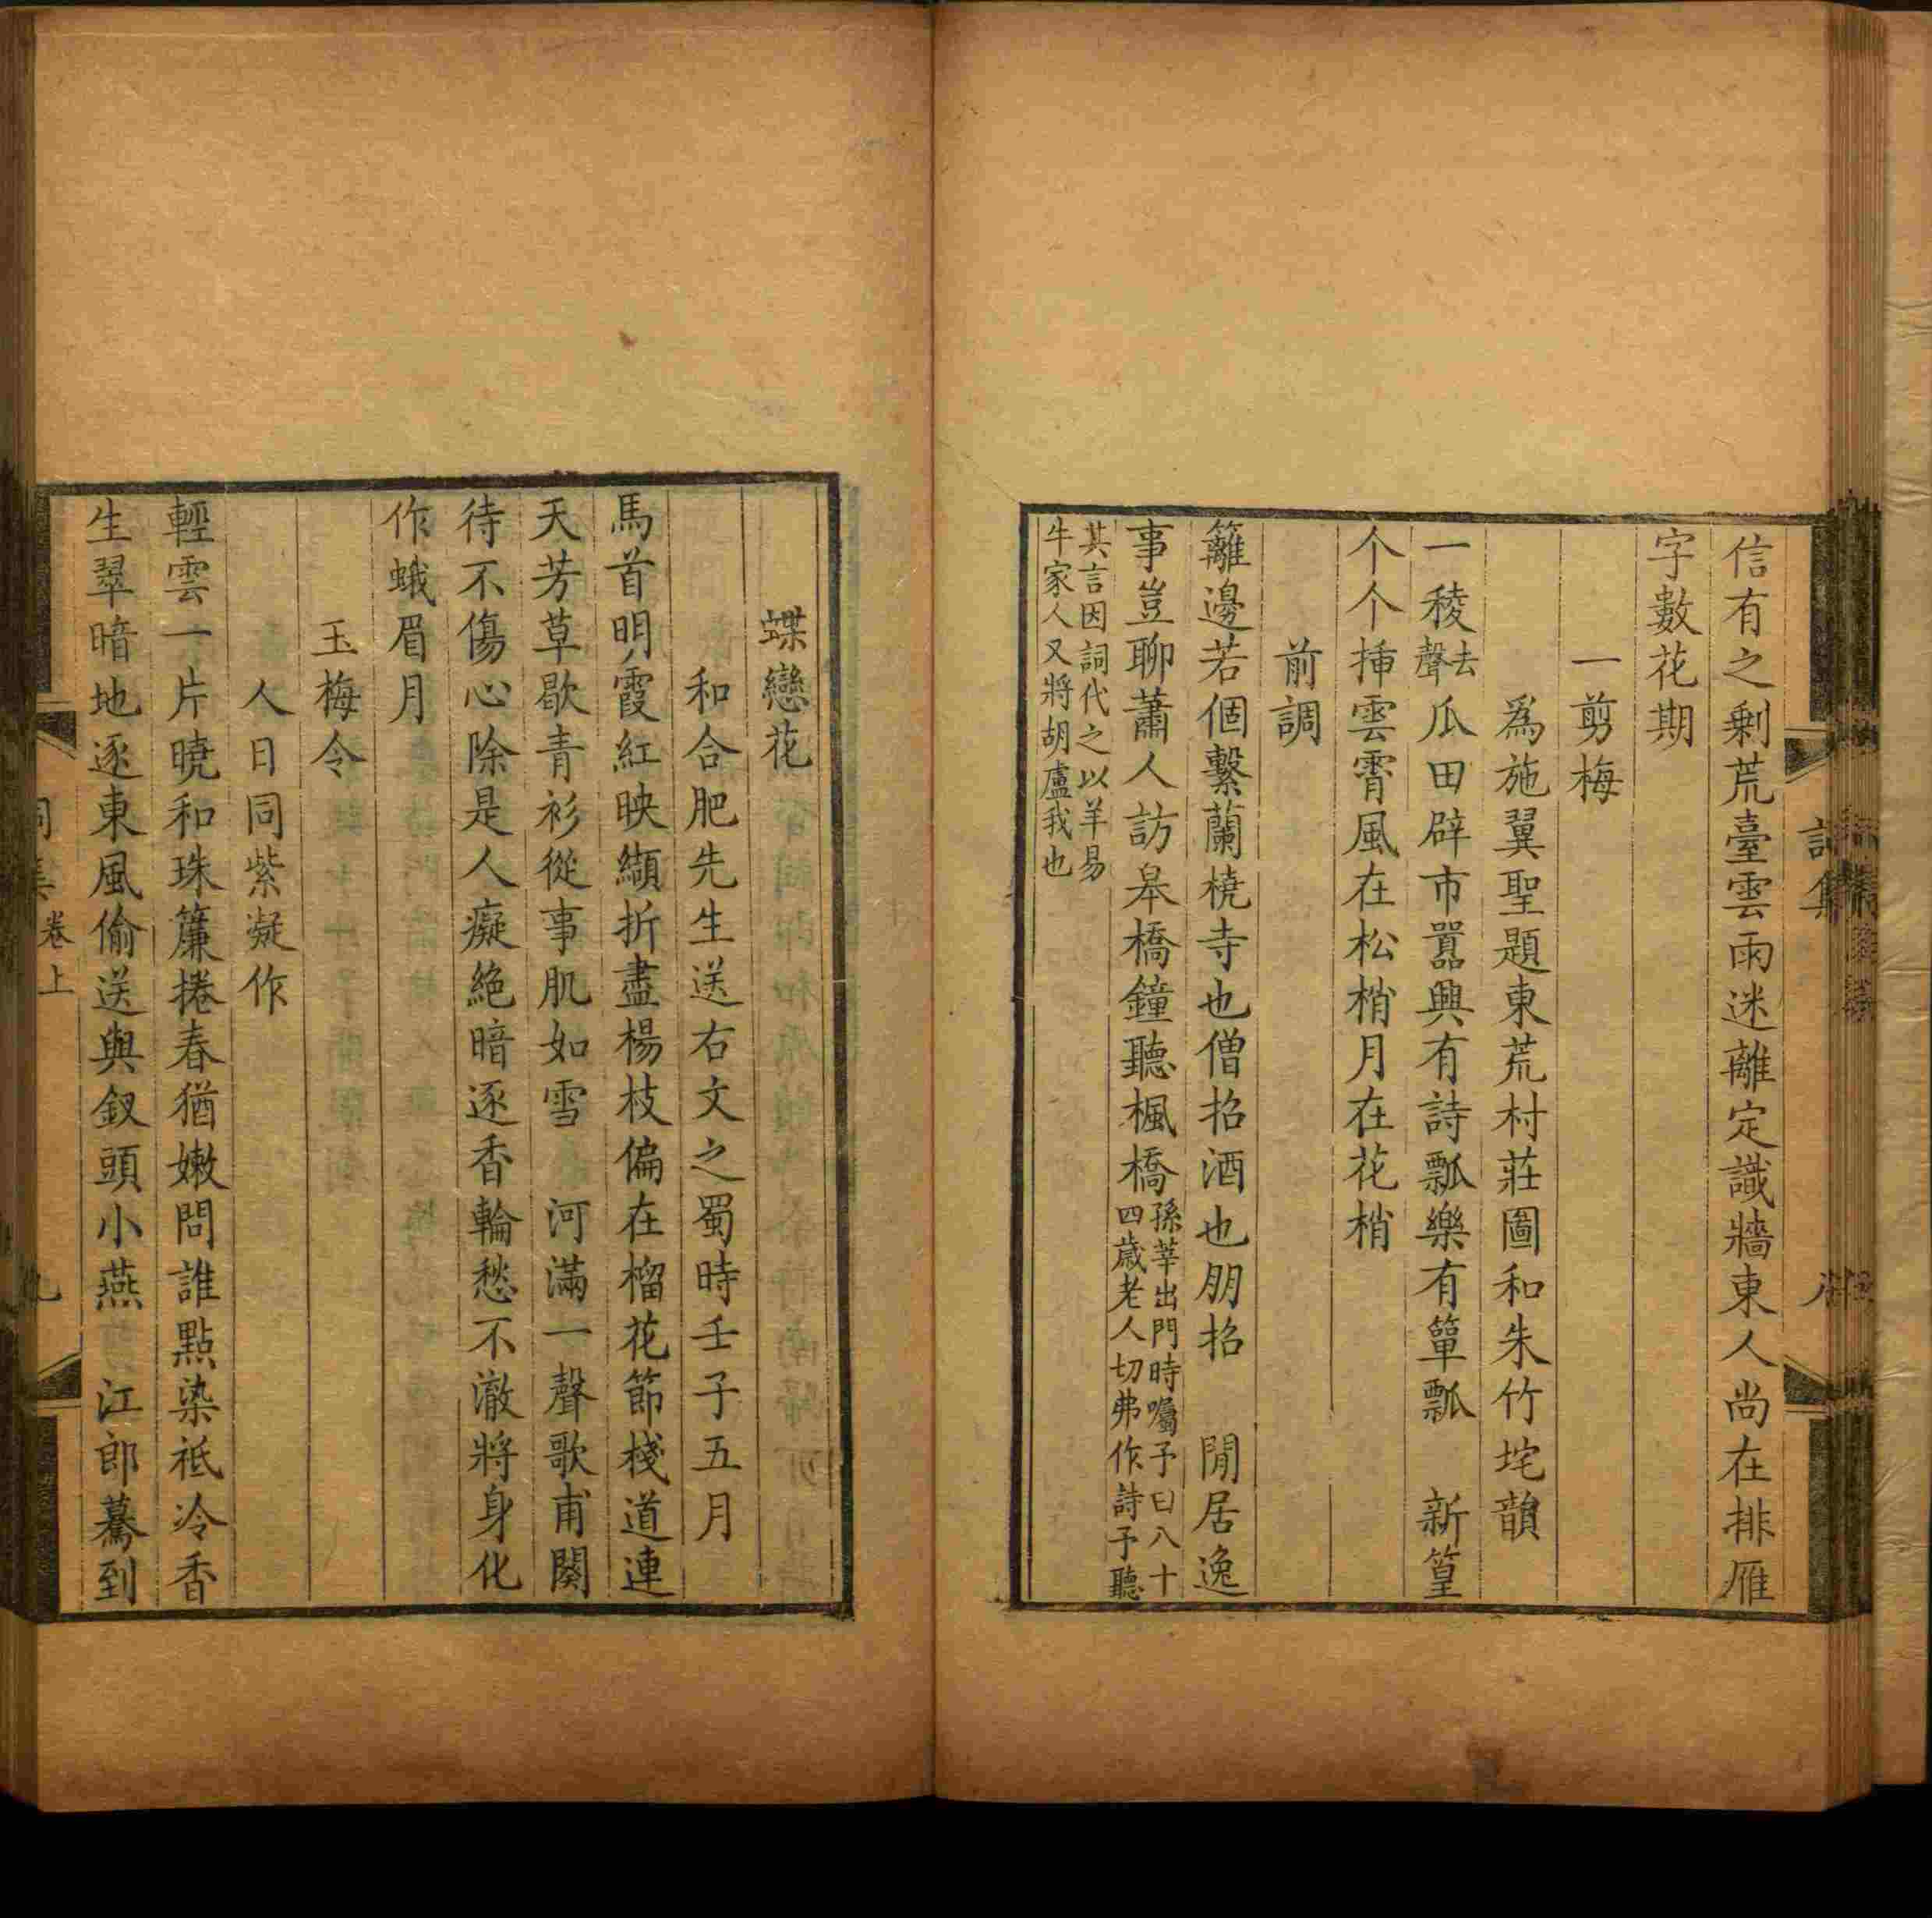 信有之剩荒臺雲雨迷離定識牆東人尚在排雁
字數花期
一剪梅
為施翼聖題東荒村莊圖和朱竹垞韻
一稜去聲瓜田辟市囂興有詩瓢樂有簞瓢　新篁
个个揷雲霄風在松梢月在花梢
前調
籬邊若個繫蘭橈寺也僧招酒也朋招　閒居逸
事豈聊蕭人訪皋橋鐘聽楓橋孫莘出門時囑予曰八十
四歲老人切弗作詩予聽
其言因詞代之以羊易
牛家人又將胡盧我也
蝶戀花
和合肥先生送右文之蜀時壬子五月
馬首明霞紅映纈折盡楊枝偏在榴花節棧道連
天芳草歇青衫從事肌如雪　河滿一聲歌甫闋
待不傷心除是人癡絕暗逐香輪愁不澈將身化
作蛾眉月
玉梅令
人日同紫凝作
輕雲一片曉和珠簾捲春猶嫩問誰點染祗冷香
生翠暗地逐東風偷送與釵頭小燕　江郎驀到
卷上